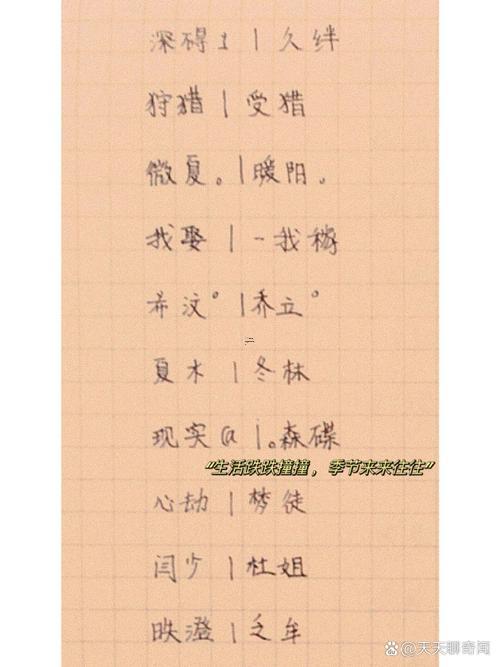 深碍± | 久绊
狩猎 | 受猎
微夏。| 暖阳。
我娶 | -我稼
希汶° | 乔立°
夏木 | 冬林
现实@ |。森碟
“生活跌跌撞撞，季节来来往往”
心劫 | 梦徒
闫少 | 杜姐
昳澄 | 乏牟
天天聊奇闻